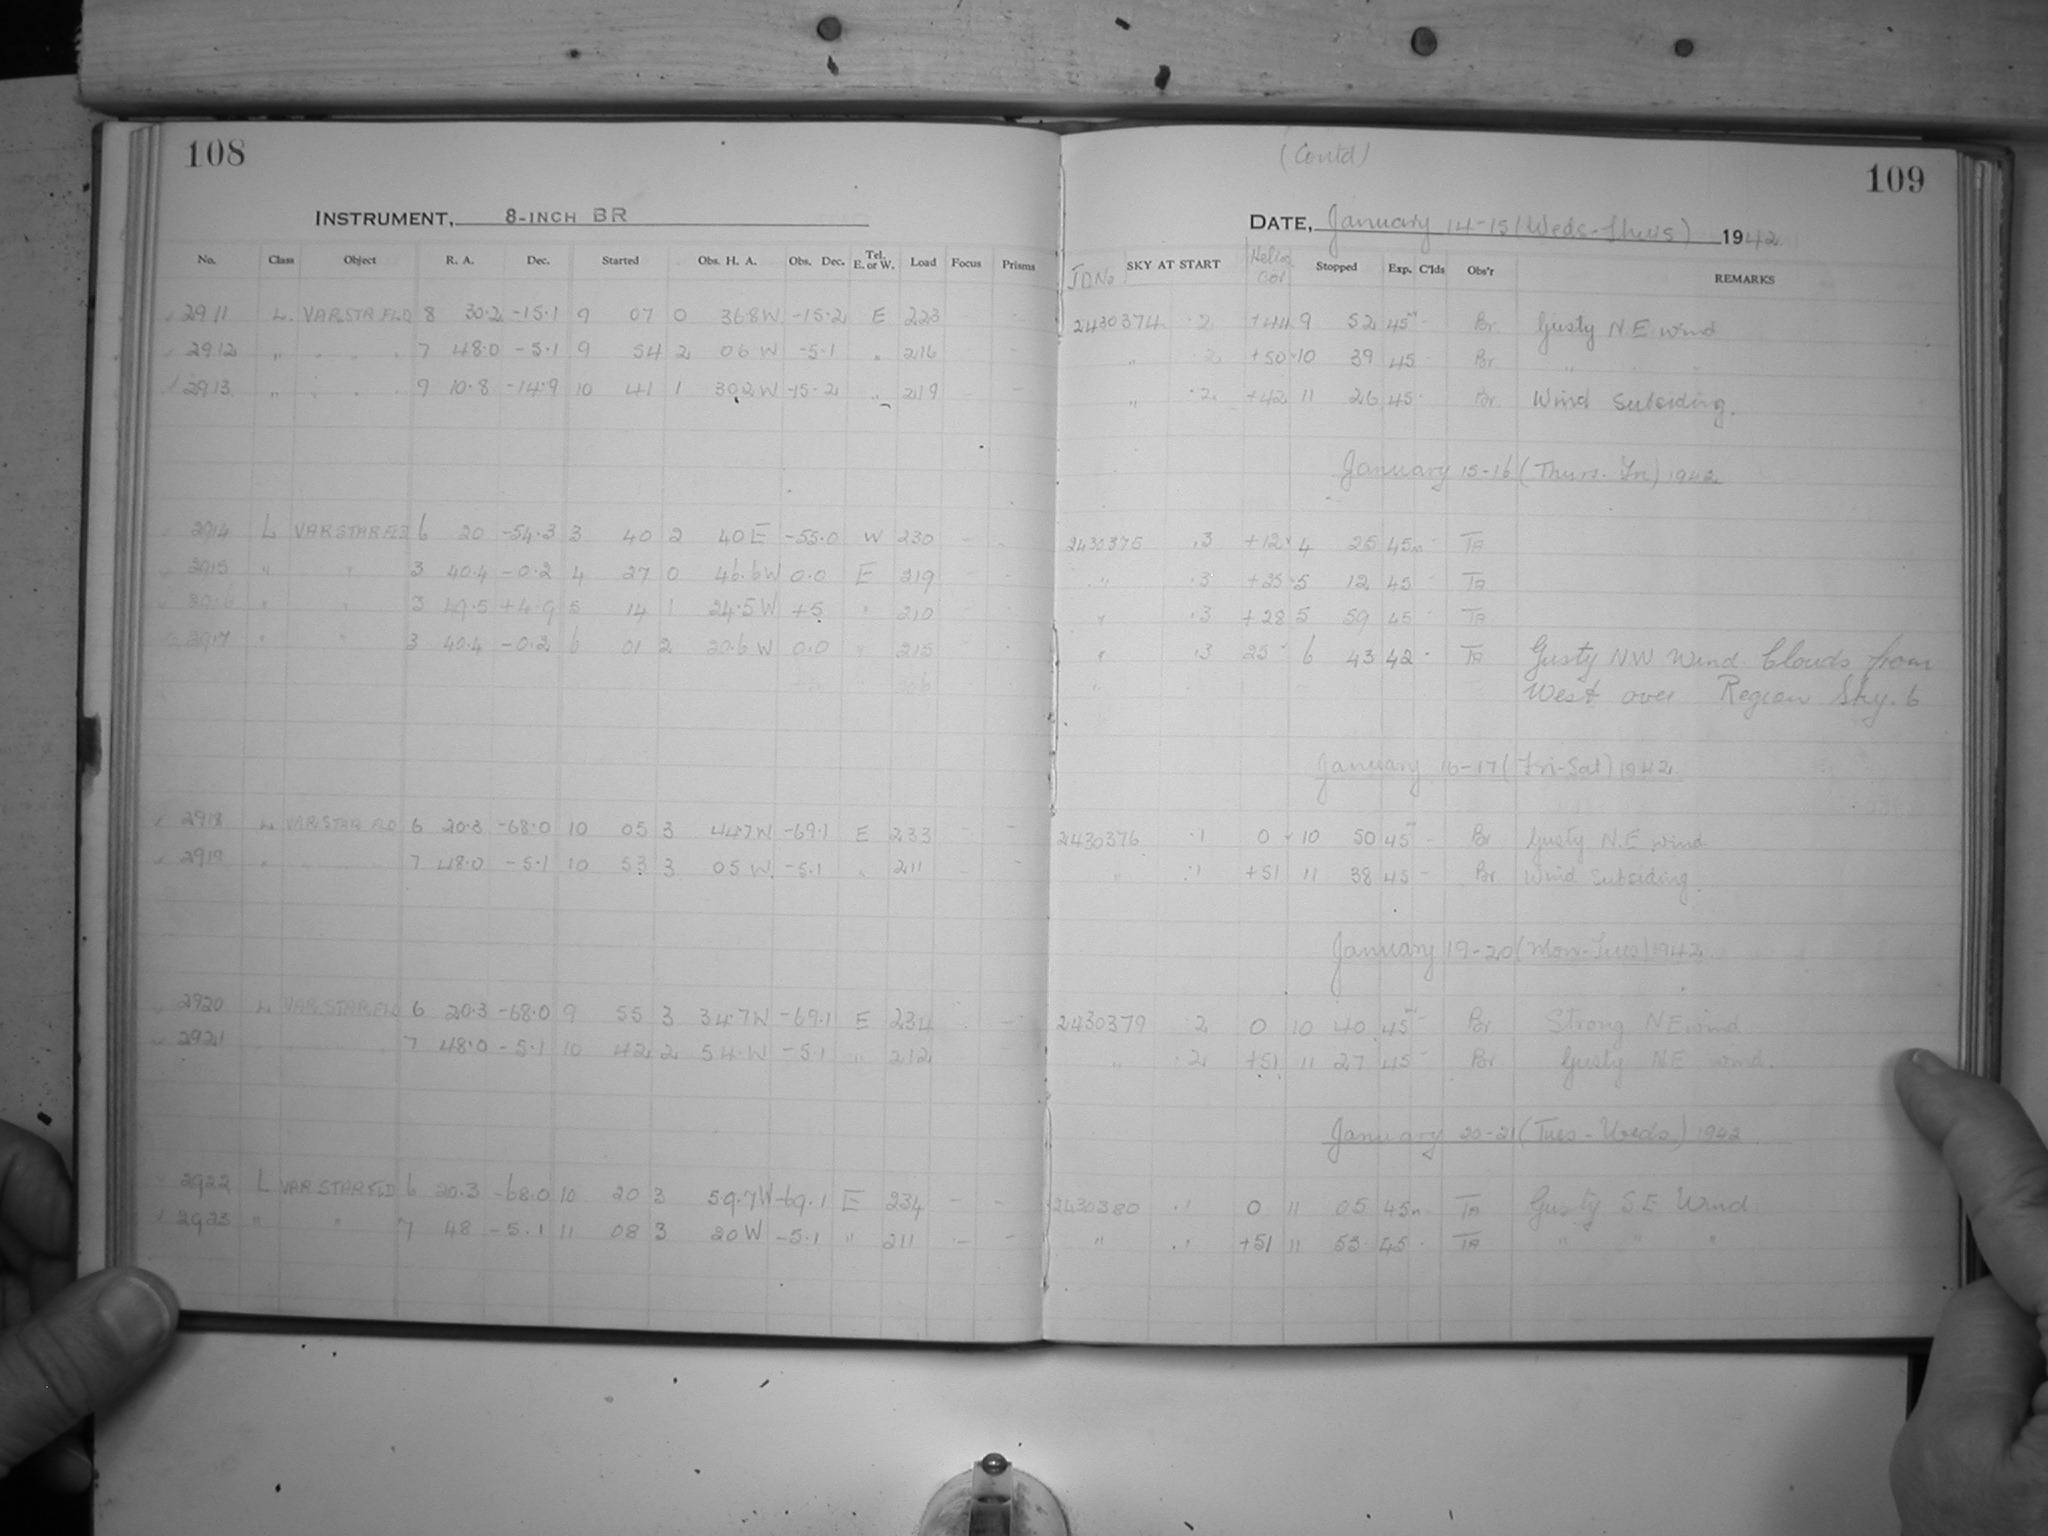 108
INSTRUMENT, 8-INCH BR
No. Class Object R. A. Dec. Started Obs. H. A. Obs. Dec. Tel. E. or W. Load Focus Prisms
2911 L. VAR.STR.FLD 8 30.2 -15.1 9 07 0 36.8 W -15.2 E 223 -
2912 " " " " 7 48.0 -5.1 9 54 2 06 W -5.1 " 216 -
2913 " " " " 9 10.8 -14.9 10 41 1 30.2 W -15.2 " 219 -
2914 L VAR STAR FLD 6 20 -54.3 3 40 2 40 E -55.0 W 230 - -
2915 " " 3 40.4 -0.2 4 27 0 46.6 W 0.0 E 219 - -
2916 " " 3 49.5 +4.9 5 14 1 24.5 W +5 " 210
2917 " " 3 40.4 -0.2 6 01 2 20.6 W 0.0 " 215
2918 L VAR.STAR FLD 6 20.3 -68.0 10 05 3 44.7 W -69.1 E 233 - -
2919 " " 7 48.0 -5.1 10 53 3 05 W. -5.1 " 211 - -
2920 L VAR.STAR.FLD 6 20.3 -68.0 9 55 3 34.7 W -69.1 E 234 - -
2921 7 48.0 -5.1 10 42 2 54. W -5.1 " 212 -
2922 L VAR STAR FLD 6 20.3 -68.0 10 20 3 59.7 W -69.1 E 234 - -
2923 " " 7 48 -5.1 11 08 3 20 W -5.1 " 211 - -
(Contd)
109
DATE, January 14-15 (Weds-Thurs) 1942
JD No SKY AT START Helio. Cor Stopped Exp. C'lds Obs'r REMARKS
2430374 .2 +44 9 52 45m - Br Gusty N.E wind
" .2 +50 10 39 45 - Br " " "
" .2 +42 11 26 45 - Br Wind Subsiding.
January 15-16 (Thurs-Fri) 1942
2430375 .3 +12 4 25 45m - TA
" .3 +25 5 12 45 - TA
" .3 +28 5 59 45 - TA
" .3 25 6 43 42 - TA Gusty N.W Wind. Clouds from
West over Region Sky. 6
January 16-17 (Fri-Sat) 1942
2430376 .1 0 10 50 45m - Br Gusty N.E wind
" .1 +51 11 38 45 - Br Wind Subsiding.
January 19-20 (Mon-Tues) 1942
2430379 .2 0 10 40 45m - Br Strong NE wind
" .2 +51 11 27 45 - Br Gusty NE wind.
January 20-21 (Tues-Weds) 1942
2430380 .1 0 11 05 45m - TA Gusty S E Wind
" .1 +51 11 53 45 - TA " " "